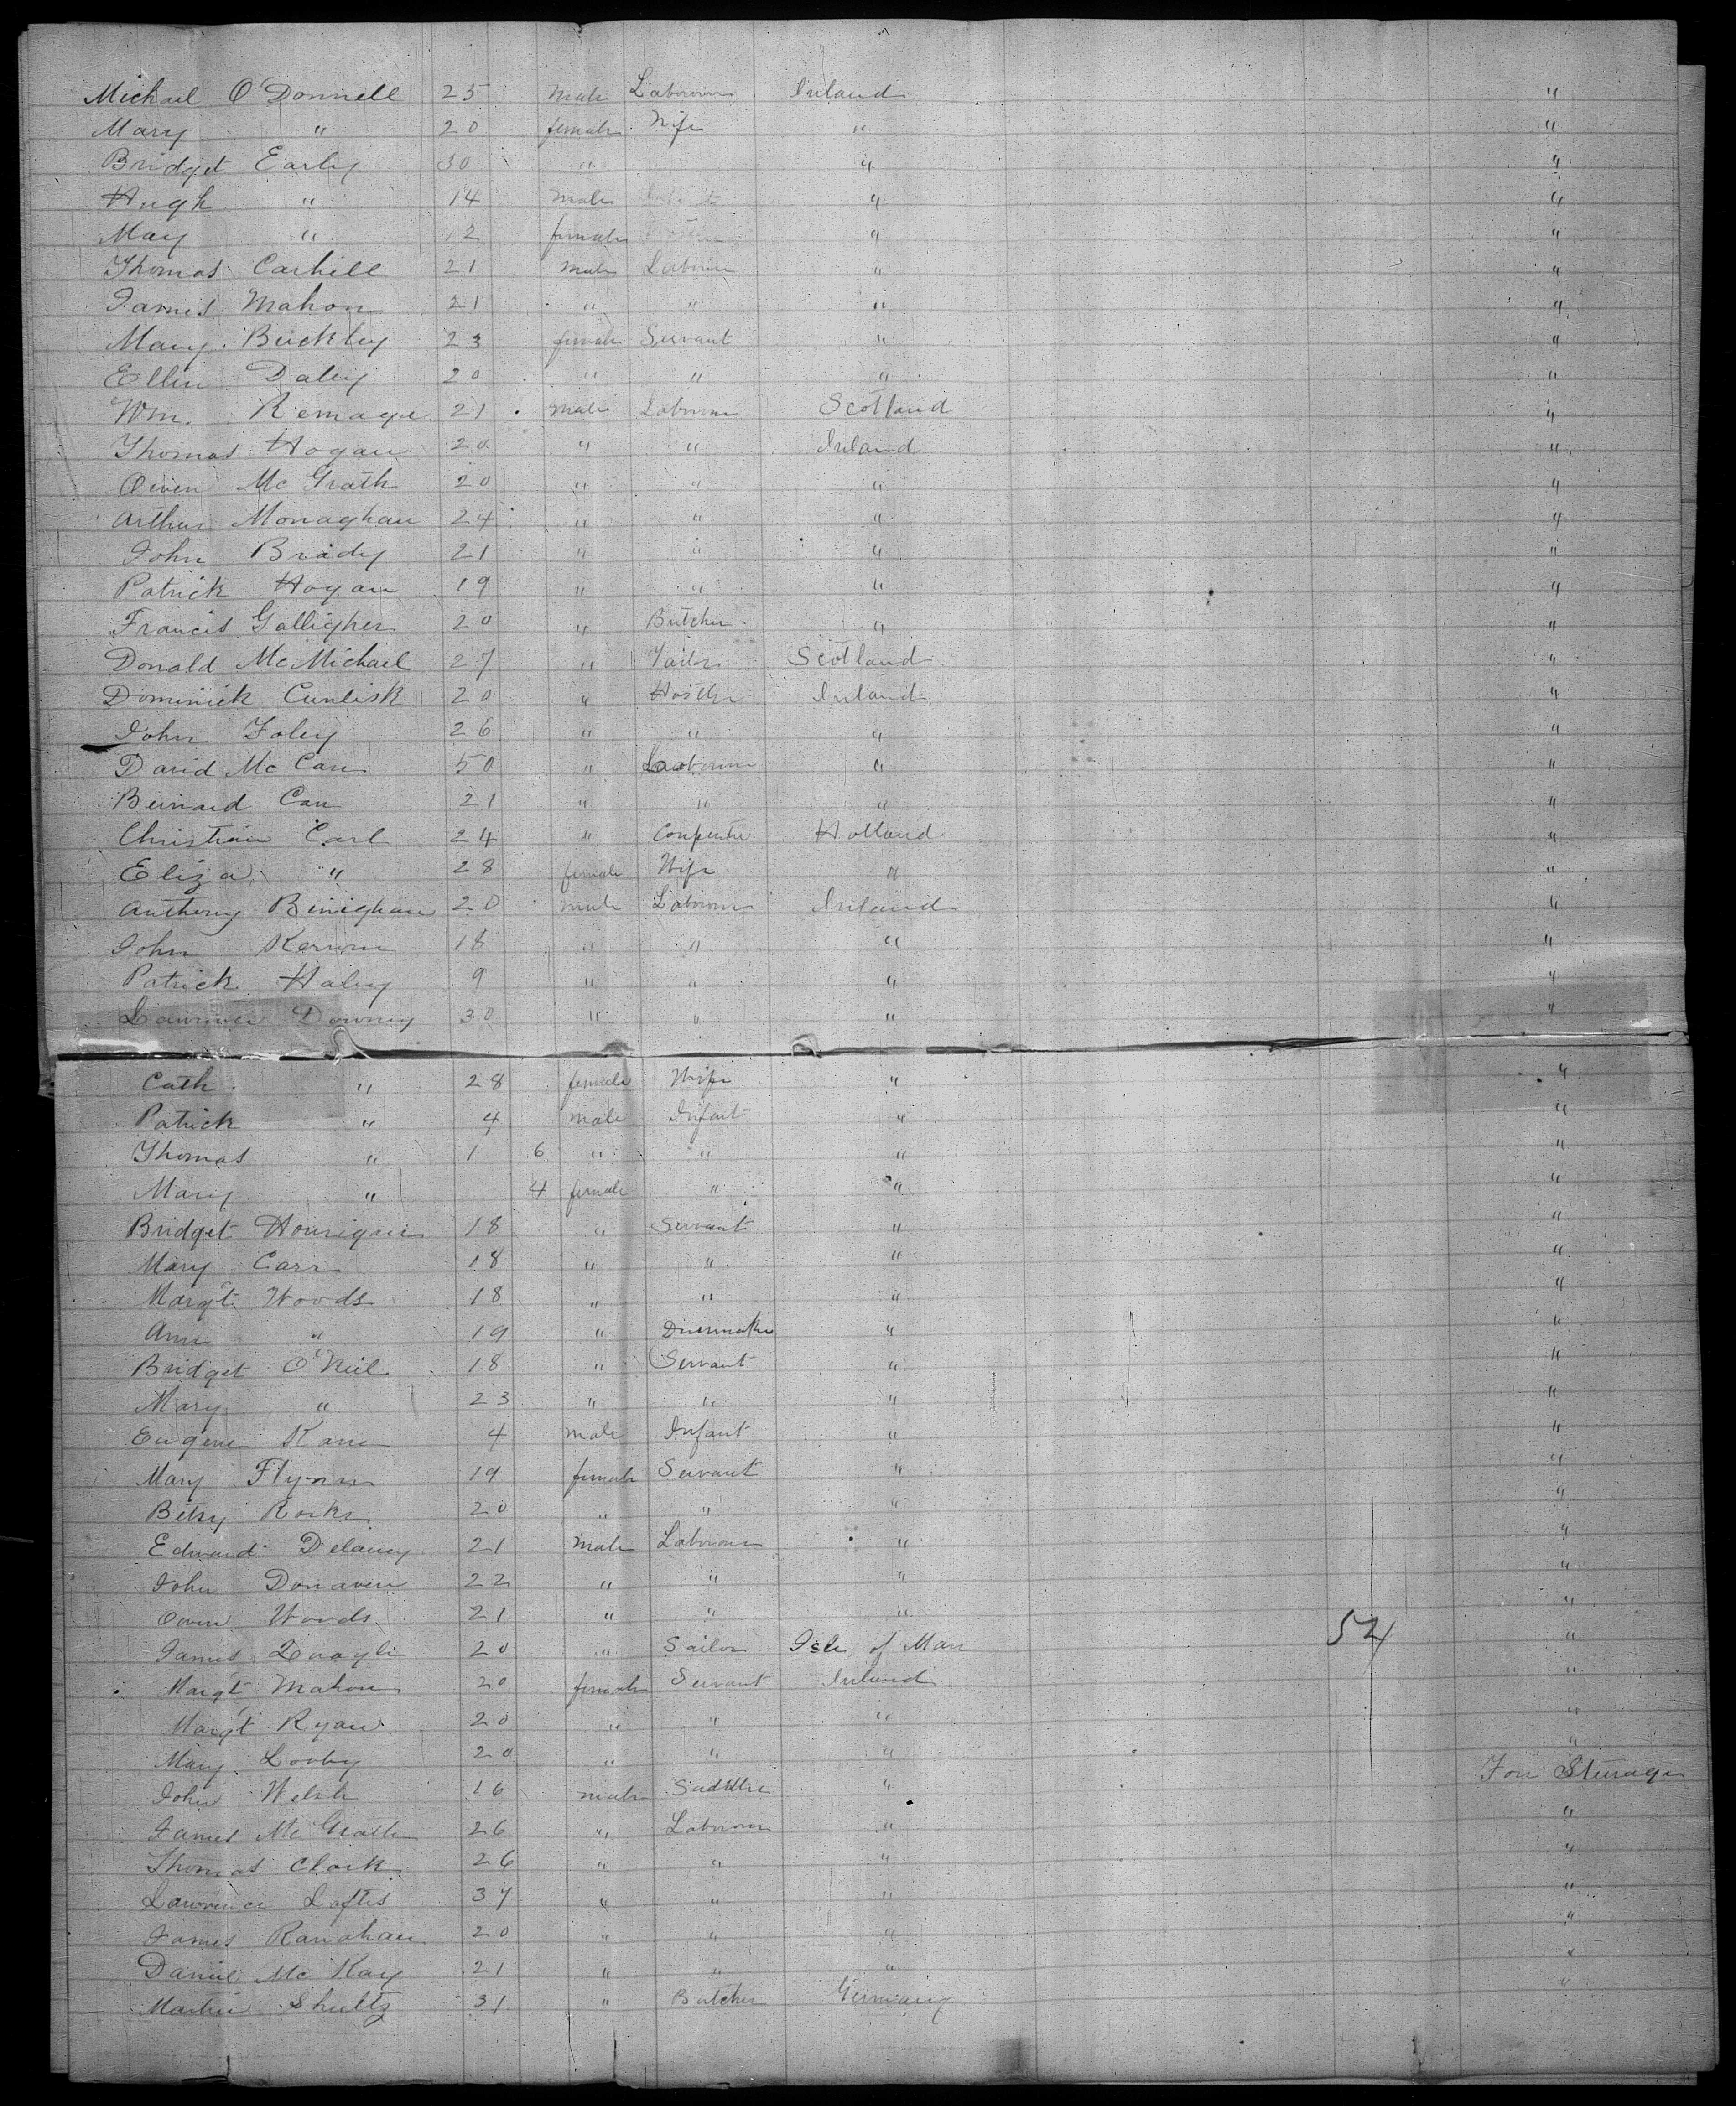 Michael O'Donnell 25 male Labourer Ireland "
Mary " 20 female Wife " "
Bridget Early 30 " " "
Hugh " 14 male " "
May " 12 female " "
Thomas Carhill 21 male Labourer " "
James Mahon 21 " " " "
Mary Buckley 23 female Servant " "
Ellen Daley 20 " " " "
Wm. Remage 21 male Labourer Scotland "
Thomas Hogan 20 " " Ireland "
Owen Mc Grath 20 " " " "
Arthur Monaghan 24 " " " "
John Brady 21 " " " "
Patrick Hogan 19 " " " "
Francis Galligher 20 " Butcher " "
Donald McMichael 27 " Tailor Scotland "
Dominick Cunlisk 20 " Hostler Ireland "
John Foley 26 " " " "
David Mc Cann 50 " Labourer " "
Bernard Carr 21 " " " "
Christian Carl 24 " Carpenter Holland "
Eliza " 28 female Wife " "
Anthony Binighan 20 male Labourer Ireland "
John Kerwin 18 " " " "
Patrick Haley 9 " " " "
Lawrence Downey 30 " " " "
Cath " 28 female Wife " "
Patrick " 4 male Infant " "
Thomas " 1 6 " " " "
Mary " 4 female " " "
Bridget Hourigan 18 " Servant " "
Mary Carr 18 " " " "
Margt. Woods 18 " " " "
Ann " 19 " Dressmaker " "
Bridget O'Neil 18 " Servant " "
Mary " 23 " " " "
Eugene Kane 4 male Infant " "
Mary Flynn 19 female Servant " "
Betsy Rorke 20 " " " "
Edward Delaney 21 male Labourer " "
John Donaven 22 " " " "
Owen Woods 21 " " " "
James Quayle 20 " Sailor Isle of Man 54 "
Margt Mahon 20 female Servant Ireland "
Margt Ryan 20 " " " "
Mary Looby 20 " " " "
John Welsh 16 male Saddler " Fore Steerage
James Mc Grath 26 " Labourer " "
Thomas Clark 26 " " " "
Lawrence Loftis 37 " " " "
James Ranahan 20 " " " "
Daniel Mc Kay 21 " " " "
Martin Shultz 31 " Butcher Germany "